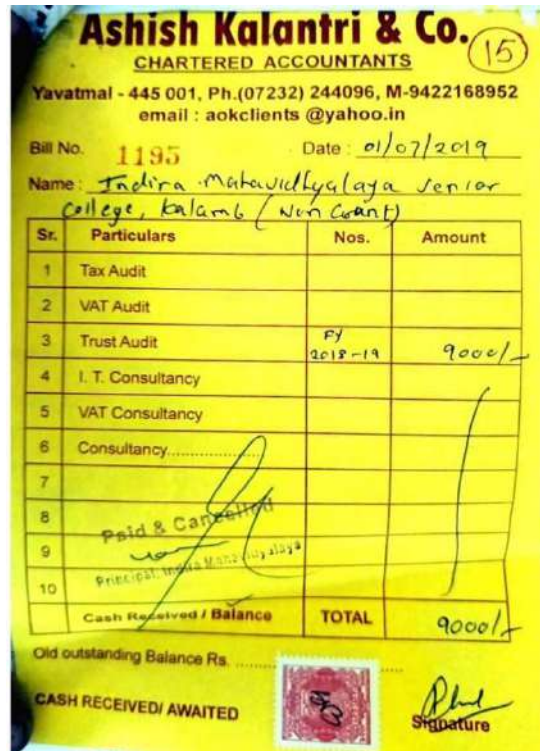 Ashish Kalantri & Co.
15
CHARTERED ACCOUNTANTS
Yavatmal - 445 001, Ph.(07232) 244096, M-9422168952
email : aokclients @yahoo.in
Bill No. 1195 Date : 01/07/2019
Name : Indira Mahavidhyalaya Senior
College, Kalamb (Non Grant)
Sr. Particulars Nos. Amount
1 Tax Audit
2 VAT Audit
3 Trust Audit FY 2018-19 9000/-
4 I. T. Consultancy
5 VAT Consultancy
6 Consultancy..................
7
8
Paid & Cancelled
9
Principal, Indira Mahavidyalaya
10
Cash Received / Balance TOTAL 9000/-
Old outstanding Balance Rs.
CASH RECEIVED/ AWAITED
Signature